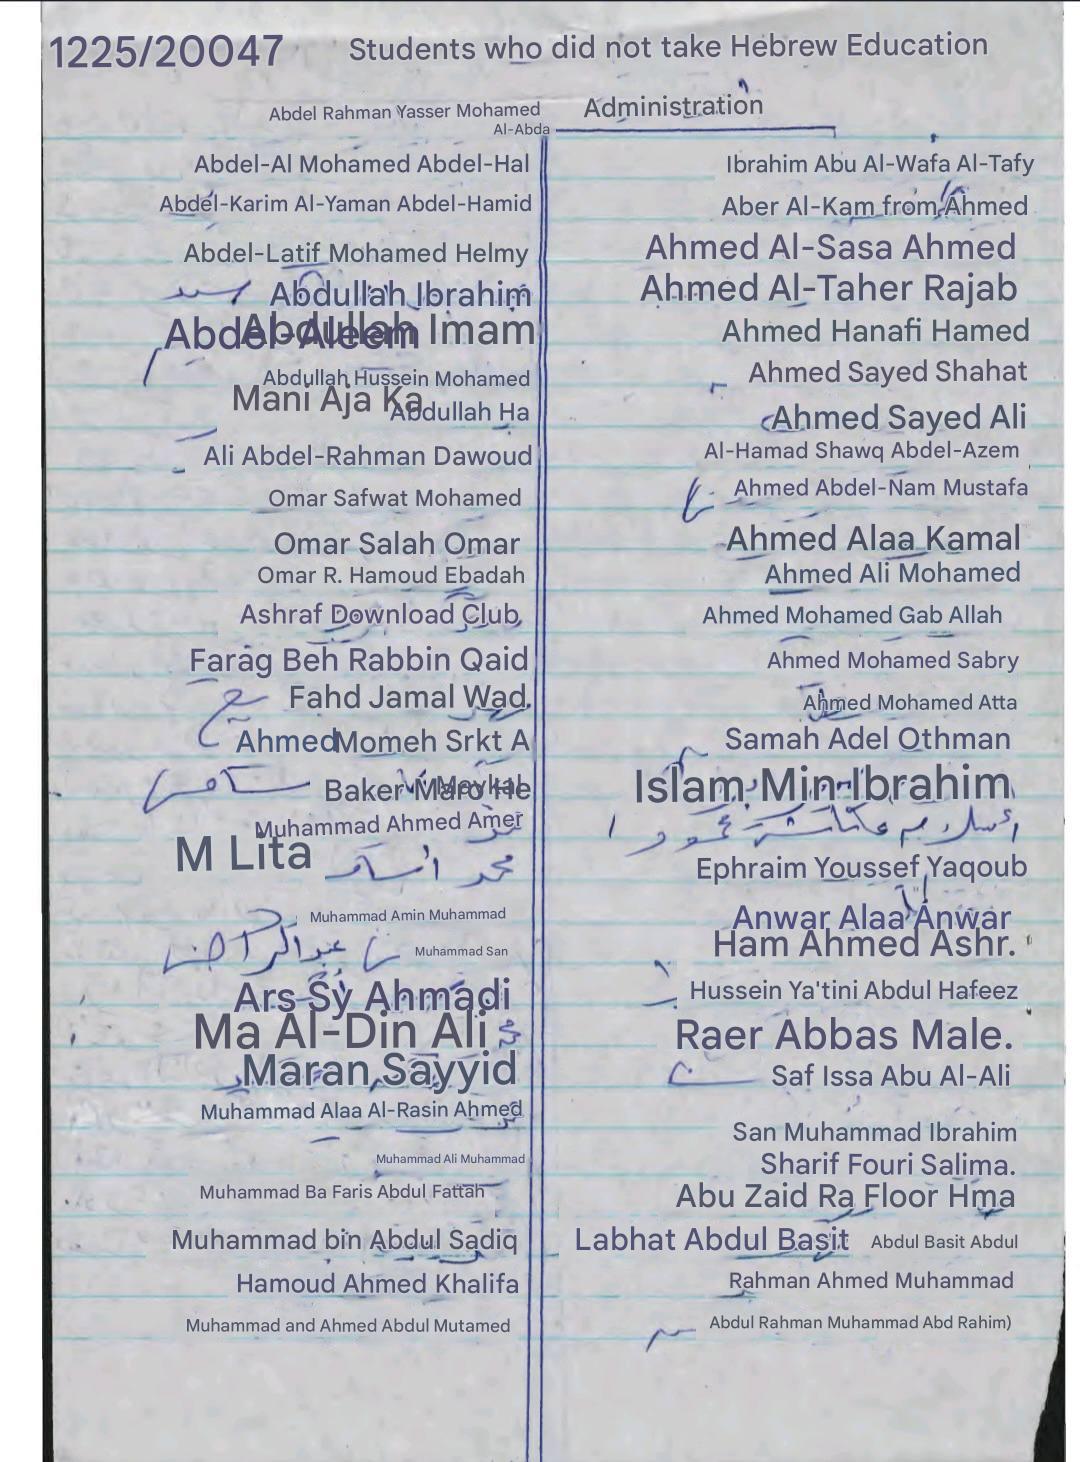 1225/20047 Students who did not take Hebrew Education
Administration
Ibrahim Abu Al-Wafa Al-Tafy
Aber Al-Kam from Ahmed
Ahmed Al-Sasa Ahmed
Ahmed Al-Taher Rajab
Ahmed Hanafi Hamed
Ahmed Sayed Shahat
Ahmed Sayed Ali
Al-Hamad Shawq Abdel-Azem
Ahmed Abdel-Nam Mustafa
Ahmed Alaa Kamal
Ahmed Ali Mohamed
Ahmed Mohamed Gab Allah
Ahmed Mohamed Sabry
Ahmed Mohamed Atta
Samah Adel Othman
Islam Min Ibrahim
عكاشة محمود
Ephraim Youssef Yaqoub
Anwar Alaa Anwar
Ham Ahmed Ashr.
Hussein Ya'tini Abdul Hafeez
Raer Abbas Male.
Saf Issa Abu Al-Ali
San Muhammad Ibrahim
Sharif Fouri Salima.
Abu Zaid Ra Floor Hma
Labhat Abdul Basit Abdul Basit Abdul
Rahman Ahmed Muhammad
Abdul Rahman Muhammad Abd Rahim)
Abdel Rahman Yasser Mohamed
Al-Abda
Abdel-Al Mohamed Abdel-Hal
Abdel-Karim Al-Yaman Abdel-Hamid
Abdel-Latif Mohamed Helmy
Abdullah Ibrahim
Abdullah Imam
Abdel-Aleem
Abdullah Hussein Mohamed
Mani Aja Ka
Abdullah Ha
Ali Abdel-Rahman Dawoud
Omar Safwat Mohamed
Omar Salah Omar
Omar R. Hamoud Ebadah
Ashraf Download Club,
Farag Beh Rabbin Qaid
Fahd Jamal Wad.
Ahmed Momeh Srkt A
Baker Maro He
Maykal
Muhammad Ahmed Amer
M Lita محمد
Muhammad Amin Muhammad
Muhammad San
Ars Sy Ahmadi
Ma Al-Din Ali
Maran Sayyid
Muhammad Alaa Al-Rasin Ahmed
Muhammad Ali Muhammad
Muhammad Ba Faris Abdul Fattah
Muhammad bin Abdul Sadiq
Hamoud Ahmed Khalifa
Muhammad and Ahmed Abdul Mutamed